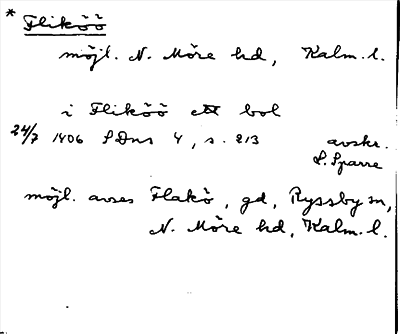 * Fliköö
möjl. N. Möre hd, Kalm. l.
i Fliköö ett bol
24/7 1406 SDns 4, s. 213 avskr.
L. Sparre
möjl. avses Flakö, gd, Ryssby sn,
N. Möre hd, Kalm. l.